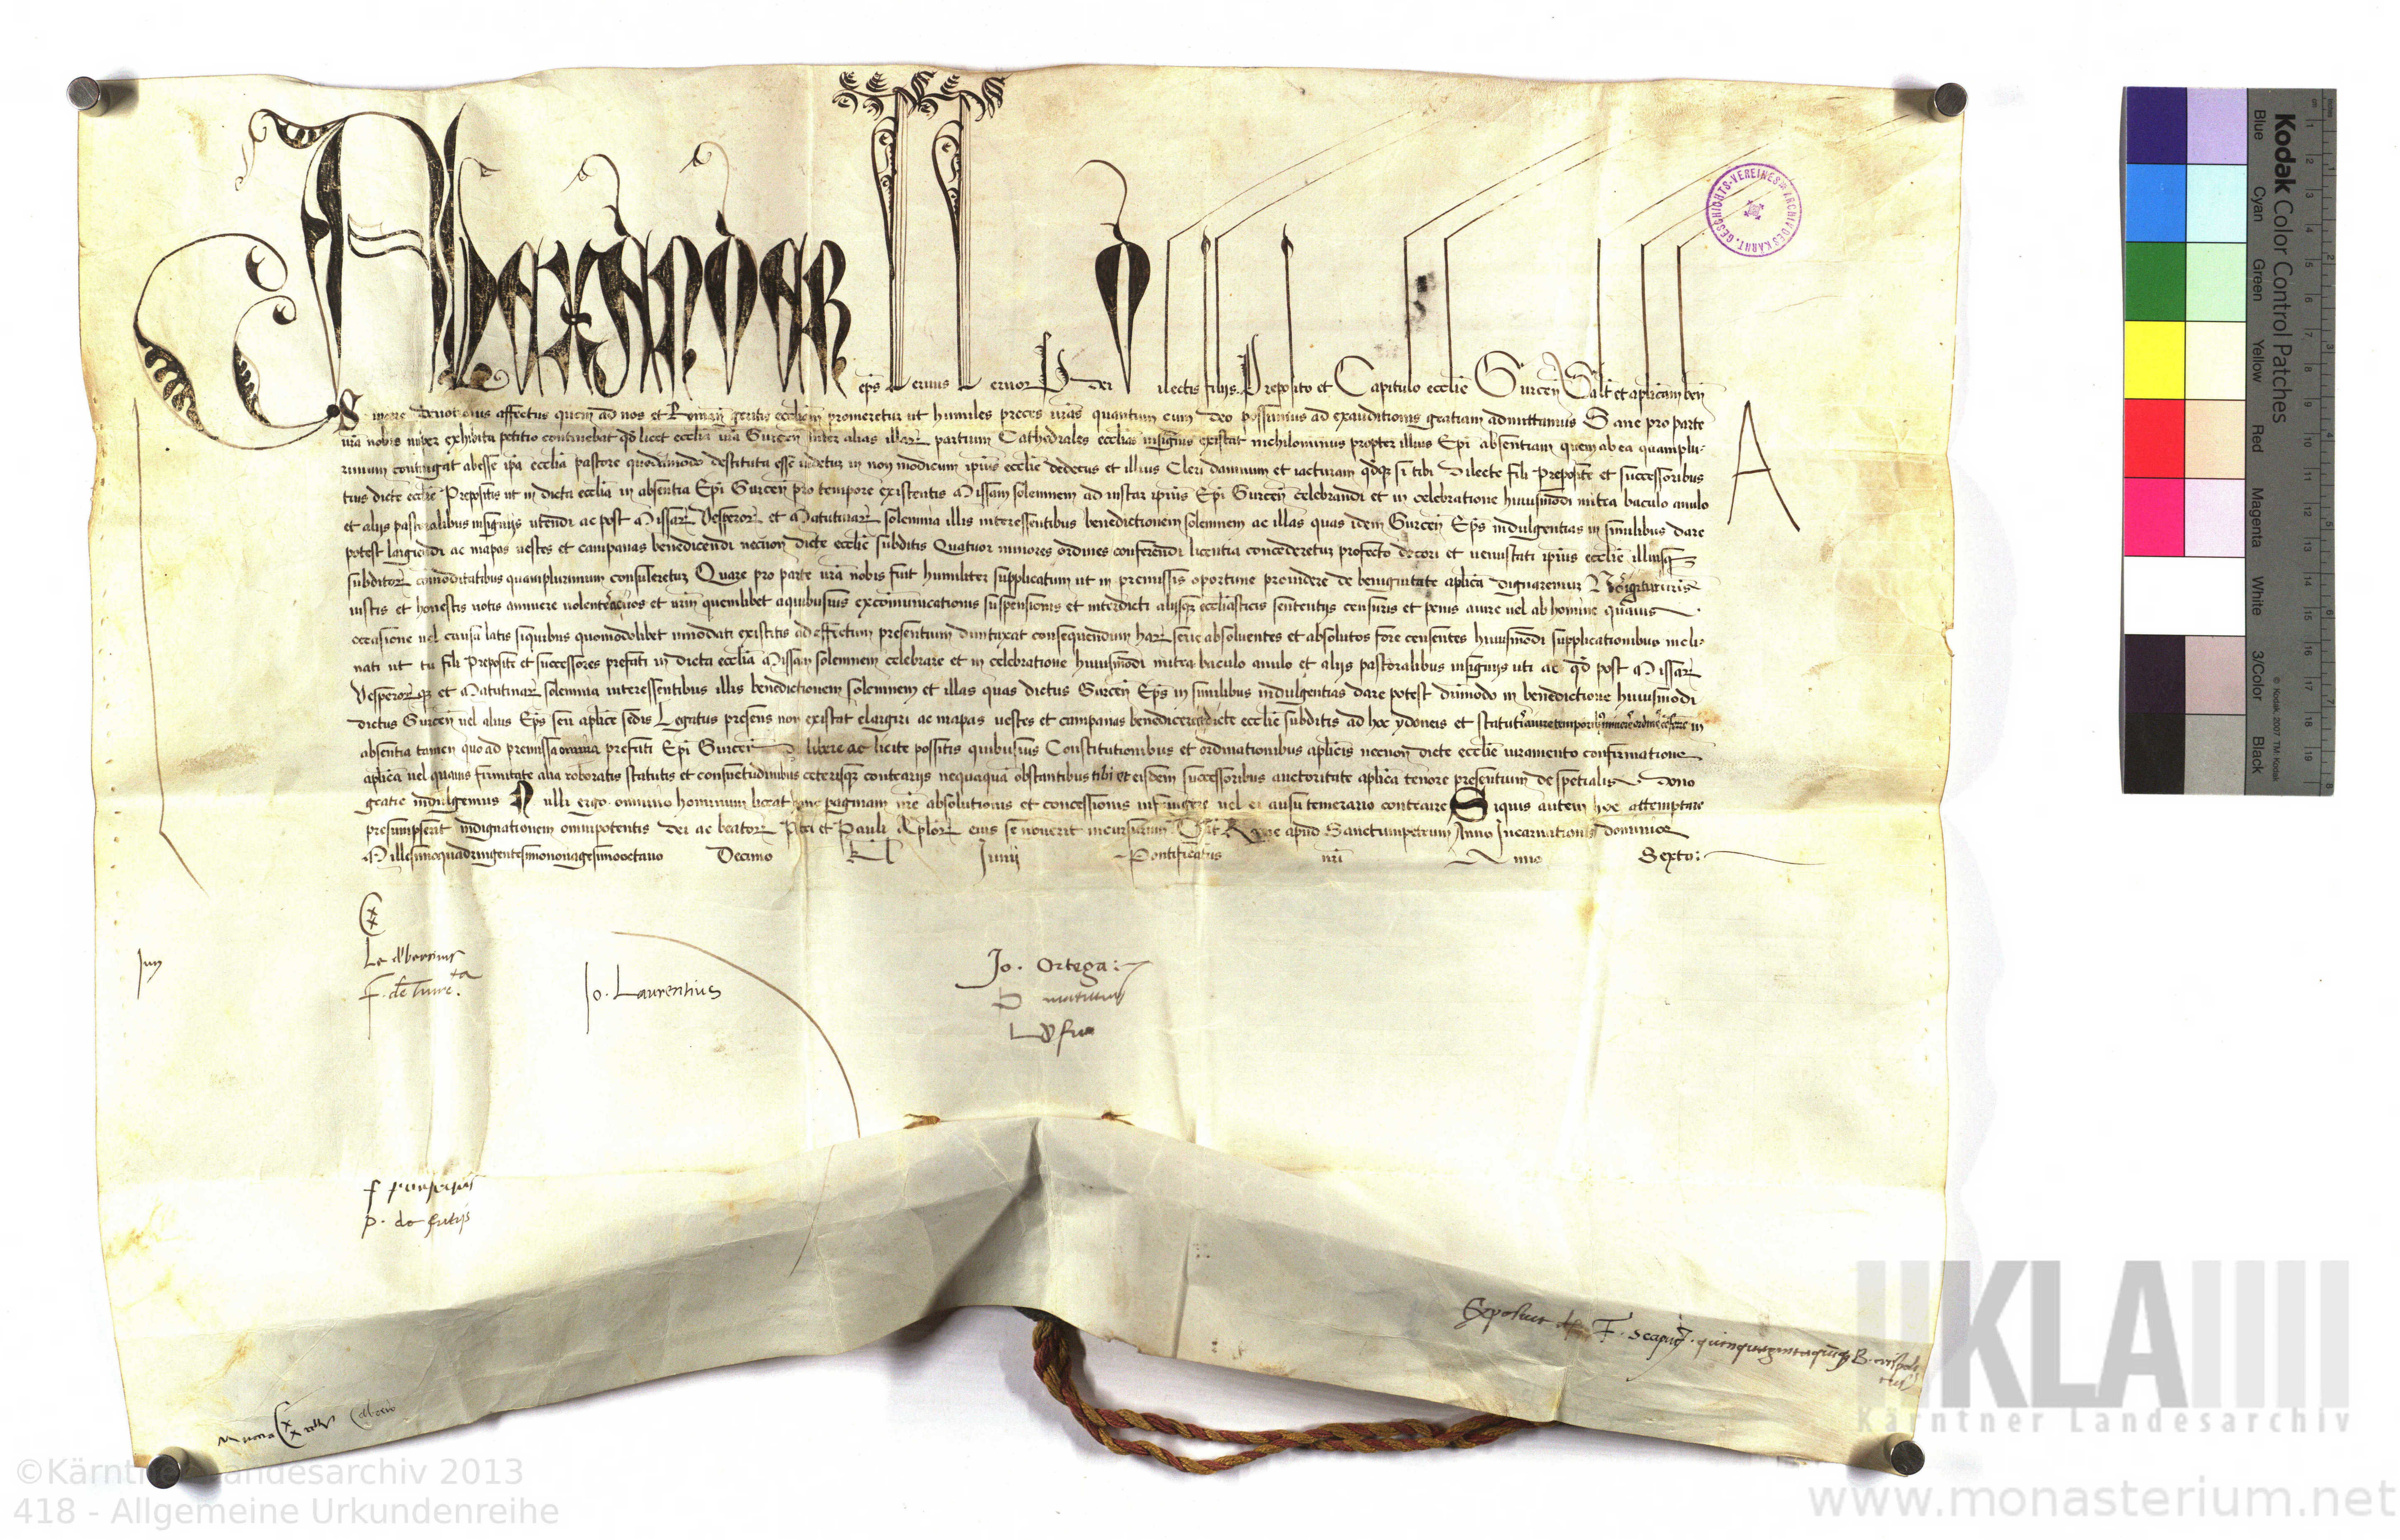 Alexander eps Seruus Seruor Dei Dilectis filijs Preposito et Capitulo ecclie Gurcen Salt et aplicam ben
Sincere deuotionis affectus quem ad nos et Romanam geritis eccliam promeretur ut humiles preces vras quantum cum deo possumus ad exauditionis gratiam admittamus Sane pro parte
vra nobis nuper exhibita petitio continebat qd licet ecclia vra Gurcen inter alias illar partium Cathedrales ecclias insignis existat nichilominus propter illius Epi absentiam quem ab ea quamplu-
rimum contingat abesse ipa ecclia pastore quodammodo destituta esse videtur in non modicum ipius ecclie dedecus et illius Cleri damnum et iacturam qdqz si tibi Dilecte fili Preposite et successoribus
tuis dicte ecclie Prepositis ut in dicta ecclia in absentia Epi Gurcen pro tempore existentis Missam solemnem ad instar ipius Epi Gurcen celebrandi et in celebratione huiusmodi mitra baculo anulo
et alijs pastoralibus insignijs utendi ac post Missar Vesperor et Matutinar solemnia illis interessentibus benedictionem solemnem ac illas quas idem Gurcen Eps indulgentias in similibus dare
potest largiendi ac mapas uestes et campanas benedicendi necnon dicte ecclie subditis Quatuor minores ordines conferendi licentia concederetur profecto decori et uenustati ipius ecclie illiusqz
subditor comoditatibus quamplurimum consuleretur Quare pro parte vra nobis fuit humiliter supplicatum ut in premissis oportune prouidere de benignitate aplica dignaremur Nos igitur
iustis et honestis uotis annuere uolentes ac uos et vrm quemlibet a quibusuis excomunicationis suspensionis et interdicti alijsqz ecclasticis sententijs censuris et penis a iure uel ab homine quauis
occasione uel causa latis siquibus quomodolibet innodati existitis ad effectum presentium duntaxat consequendum har serie absoluentes et absolutos fore censentes huiusmodi supplicationibus incli-
nati ut tu fili Preposite et successores prefati in dicta ecclia Missam solemnem celebrare et in celebratione huiusmodi mitra baculo anulo et alijs pastoralibus insignijs uti ac qd post Missar
Vesperorqz et Matutinar solemnia interessentibus illis benedictionem solemnem et illas quas dictus Gurcen Eps in similibus indulgentias dare potest dumodo in benedictione huiusmodi
dictus Gurcen uel alius Eps seu aplice sedis Legatus presens non existat elargiri ac mapas uestes et campanas benedicere dicte ecclie subditis ad hoc ydoneis et statutis a iure temporibus minores ordines conferre in
absentia tamen quo ad premissa omnia prefati Epi Gurcen libere ac licite possitis quibusuis Constitutionibus et ordinationibus aplicis necnon dicte ecclie iuramento confirmatione
aplica uel quauis firmitate alia roboratis statutis et consuetudinibus ceterisqz contrarijs nequaquam obstantibus tibi et eisdem successoribus auctoritate aplica tenore presentium de spetialis dono
gratie indulgemus Nulli ergo omnino hominum liceat hanc paginam nre absolutionis et concessionis infringere uel ei ausu temerario contraire Siquis autem hoc attemptare
presumpserit indignationem omnipotentis dei ac beator Petri et Pauli Aplor eius se nouerit incursurum Dat Rome apud Sanctumpetrum Anno Incarnationis dominice
Millesimoquadringentesimononagesimooctauo Decimo kl Junij Pontificatus nri Anno Sexto:
A
Jun
F. de
Jo. Laurentius
Jo. Ortega:
GESCHICHTS-VEREINES ARCHIV DES KÄRNT.
Kodak Color Control Patches
Blue Cyan Green Yellow Red Magenta White 3/Color Black
© Kodak, 2007 TM: Kodak
KLA
Kärntner Landesarchiv
©Kärntner Landesarchiv 2013
418 - Allgemeine Urkundenreihe
www.monasterium.net